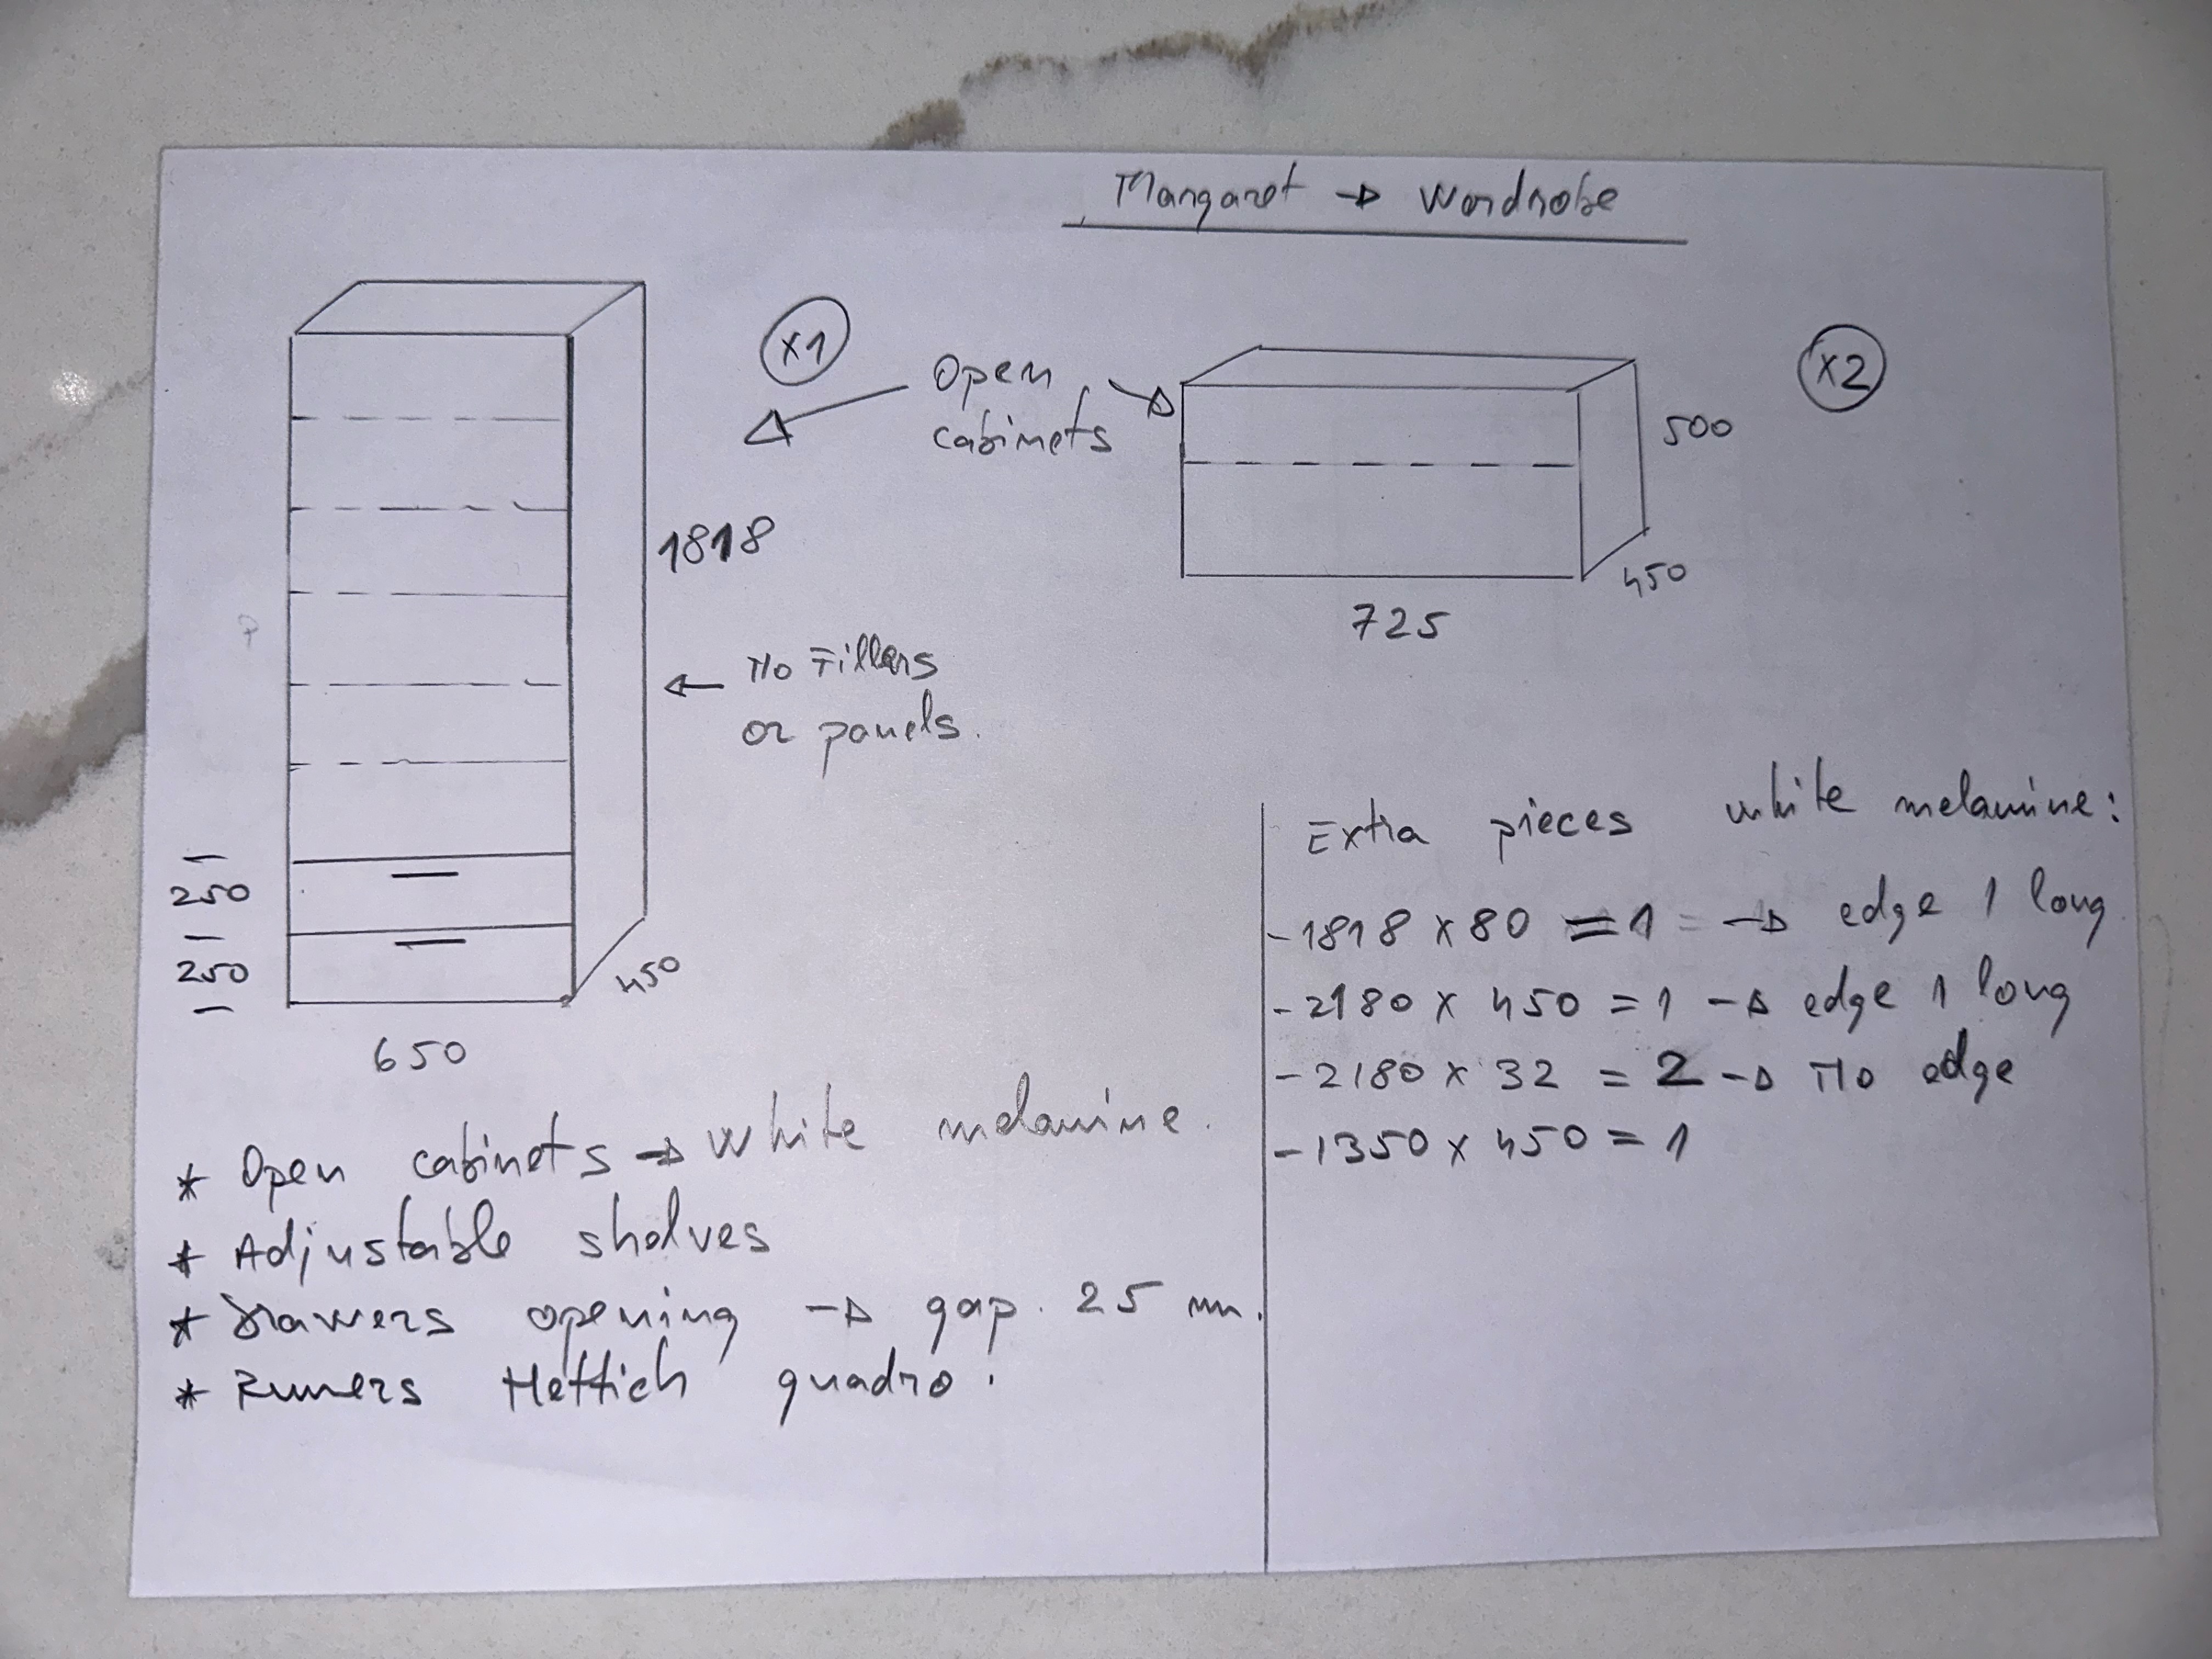 Margaret → Wardrobe
x1
Open
cabinets
x2
500
450
725
1818
No Fillers
or panels.
250
250
450
650
Extra pieces white melamine:
- 1818 x 80 = 1 = → edge 1 long
- 2180 x 450 = 1 → edge 1 long
- 2180 x 32 = 2 → No edge
- 1350 x 450 = 1
* Open cabinets → white melamine.
* Adjustable shelves
* Drawers opening → gap. 25 mm.
* Runers Hettich quadro.